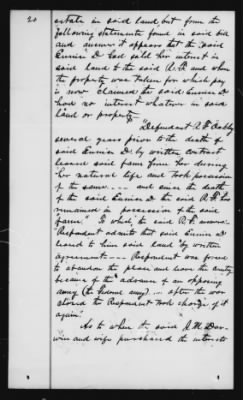 20
estate in said land, but from the
following statements found in said bill
and answer it appears that the said
had sold her interest in
said land to the said R. H. and when
the property was taken for which pay
is now claimed the said
had no interest whatever in said
land or property.
"Defendant R. H.
several years prior to the death of
said by written contract
leased said farm from her during
her natural life and took possession
of the same --- and since the death
of the said the said R. H. has
remained in possession of the said
farm." To which the said R. H.
Respondent admits that said
leased to him said land by written
agreement --- Respondent was forced
to abandon the place and leave the county
because of the advance of an opposing
army (the Federal army) ... after the war
closed the Respondent took charge of it
again."
As to when the said R. H. Dar-
win and wife purchased the interests